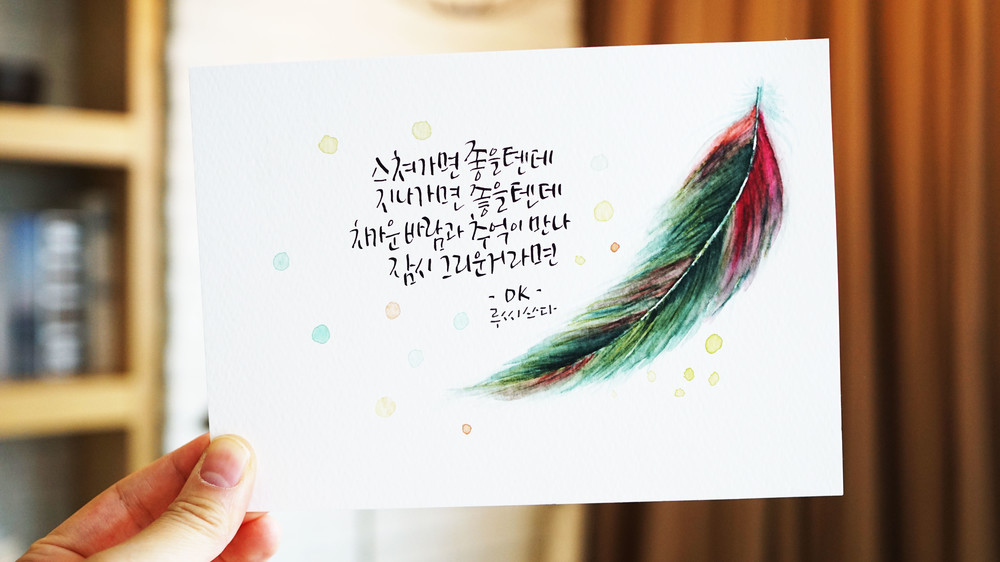 스쳐가면 좋을텐데
지나가면 좋을텐데
차가운 바람과 추억이 만나
잠시 그리운거라면
- DK -
루씨쓰다